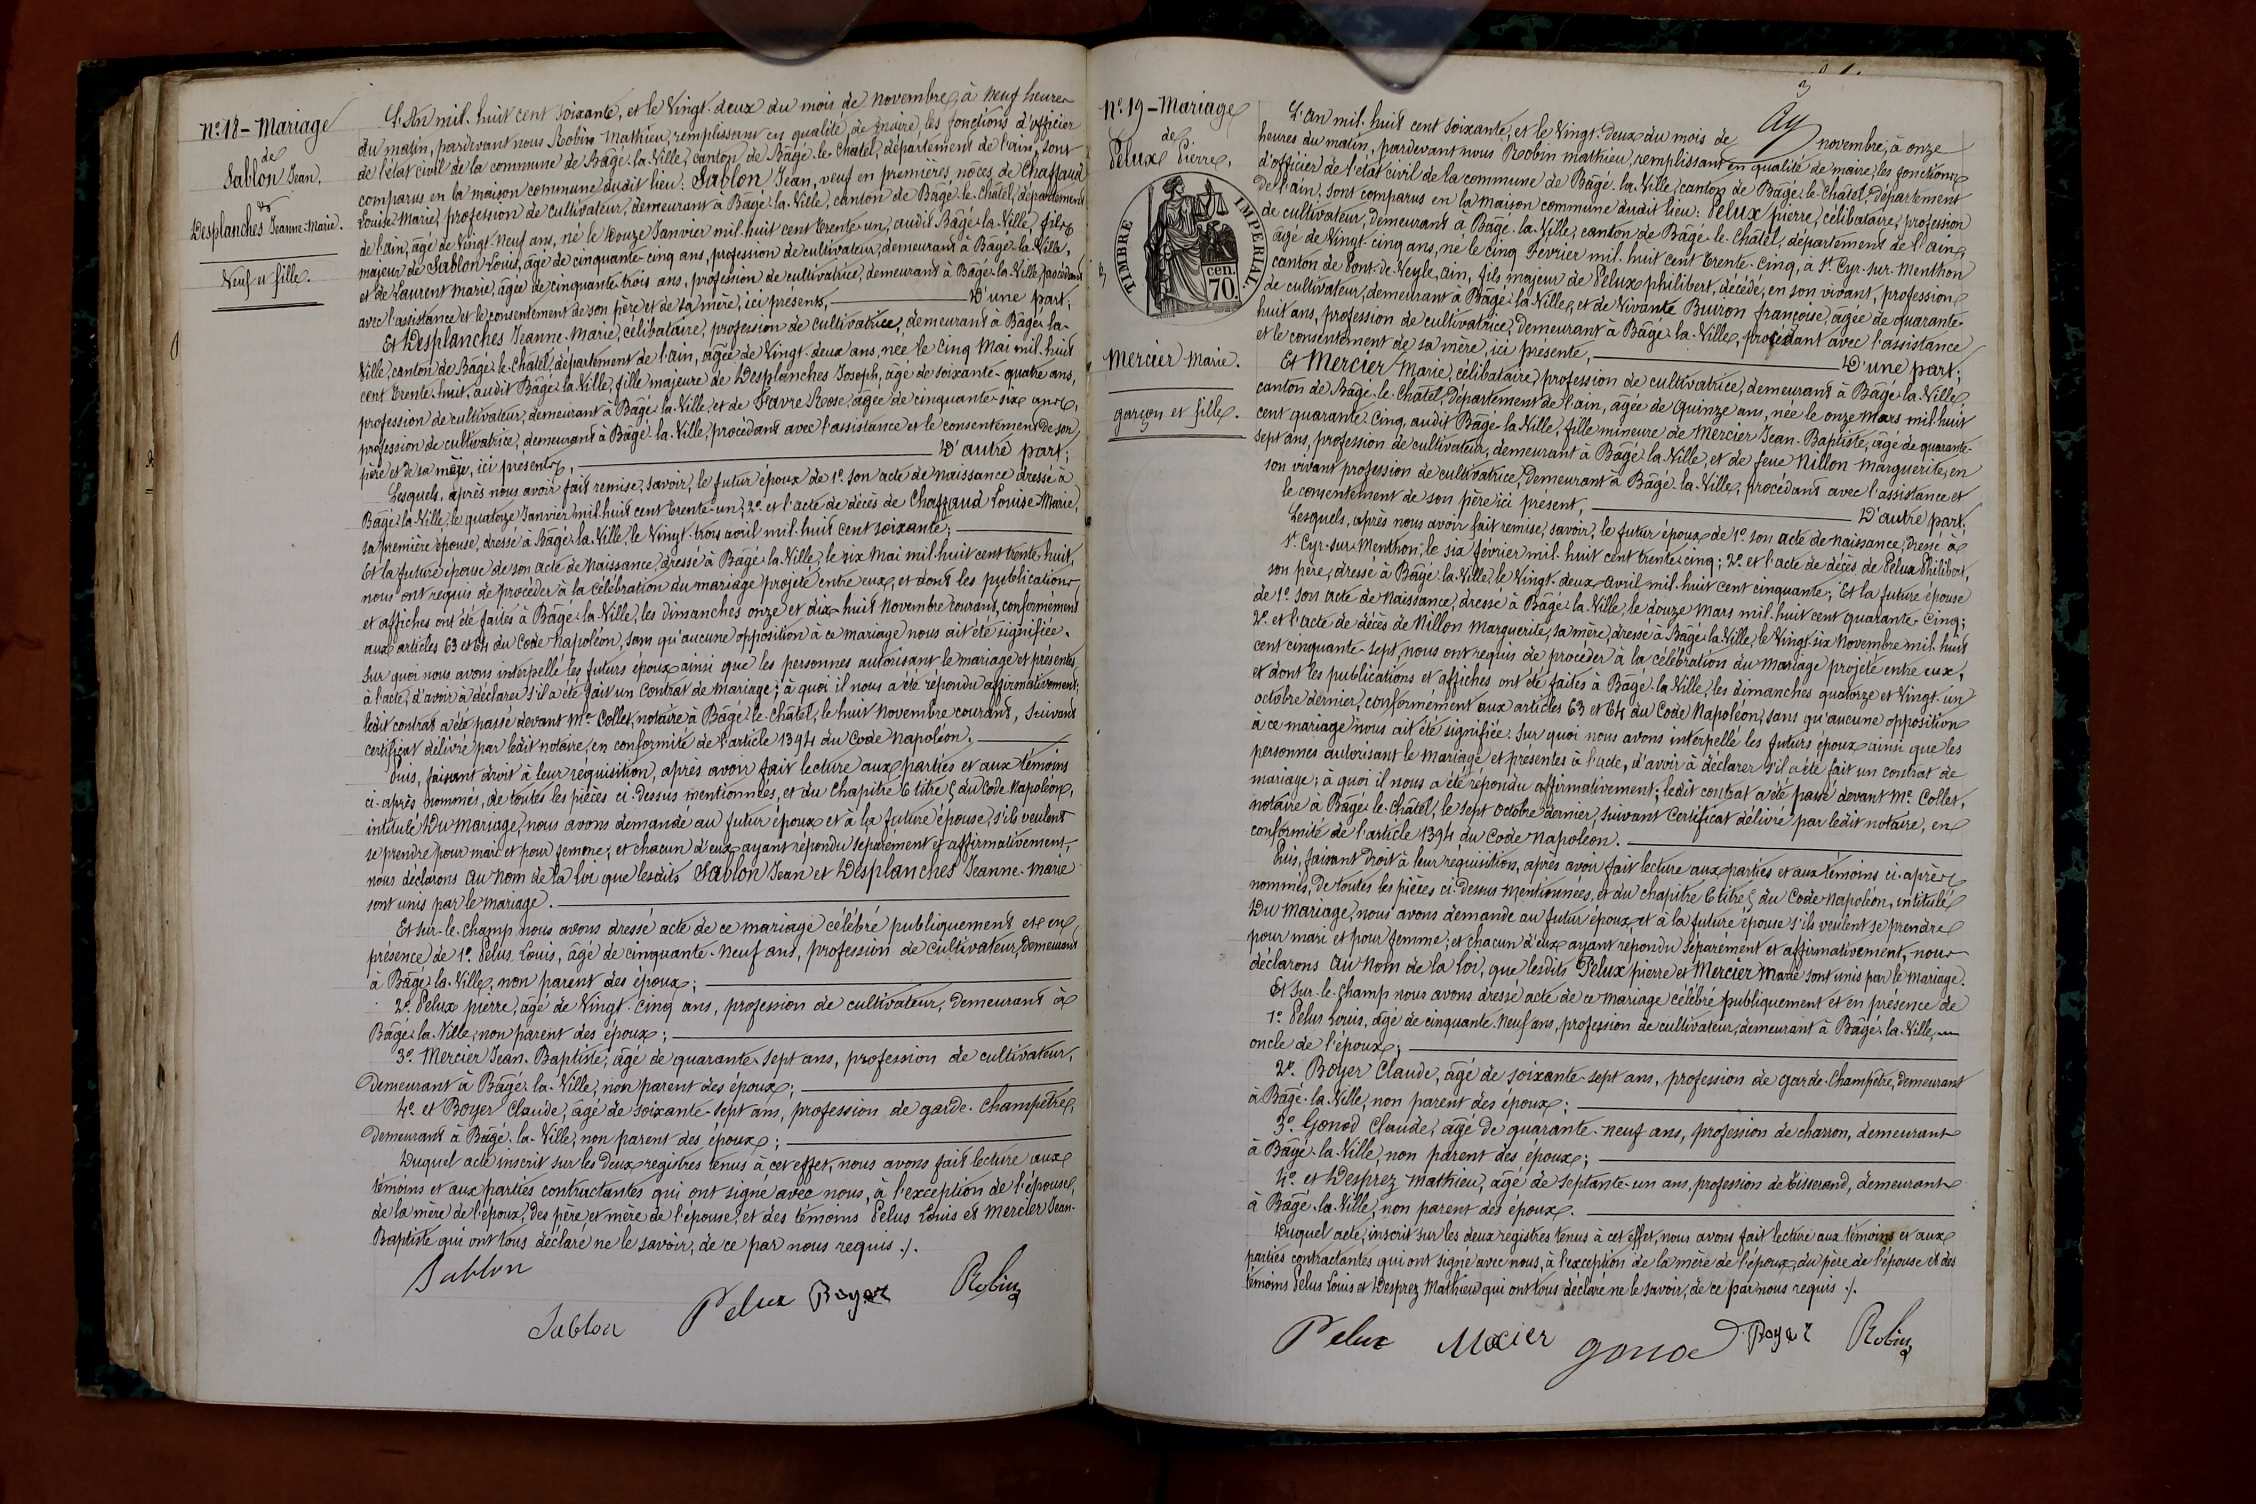 N.º 18 – Mariage
de
Sablon Jean,
&
Desplanches Jeanne-Marie.
Veuf et fille.
L'An mil-huit cent soixante, et le Vingt-deux du mois de novembre, à neuf heures
du matin, pardevant nous Robin Mathieu, remplissant en qualité de maire, les fonctions d'officier
de l'état civil de la commune de Bâgé-la-Ville, canton de Bâgé-le-Châtel, département de l'ain, sont
comparus en la maison commune dudit lieu: Sablon Jean, veuf en premières nôces de Chaffaud
Louise-Marie, profession de cultivateur, demeurant à Bâgé-la-Ville, canton de Bâgé-le-Châtel, département
de l'ain, âgé de Vingt-neuf ans, né le douze Janvier mil-huit cent trente-un, audit Bâgé-la-Ville, fils
majeur de Sablon Louis, âgé de cinquante-cinq ans, profession de cultivateur, demeurant à Bâgé-la-Ville,
et de Laurent Marie, âgée de cinquante-trois ans, profession de cultivatrice, demeurant à Bâgé-la-Ville, procédant
avec l'assistance et le consentement de son père et de sa mère, ici présents, D'une part;
Et Desplanches Jeanne-Marie, célibataire, profession de cultivatrice, demeurant à Bâgé-la-
Ville, canton de Bâgé-le-Châtel, département de l'ain, âgée de Vingt-deux ans, née le cinq Mai mil-huit
cent trente-huit, audit Bâgé-la-Ville, fille majeure de Desplanches Joseph, âgé de soixante-quatre ans,
profession de cultivateur, demeurant à Bâgé-la-Ville, et de Favre Rose, âgée de cinquante-six ans,
profession de cultivatrice, demeurant à Bâgé-la-Ville, procédant avec l'assistance et le consentement de son
père et de sa mère, ici présents, D'autre part;
Lesquels, après nous avoir fait remise, savoir, le futur époux de 1.º son acte de naissance dressé à
Bâgé-la-Ville, le quatorze Janvier mil-huit cent trente-un; 2.º et l'acte de décès de Chaffaud Louise-Marie,
sa première épouse, dressé à Bâgé-la-Ville, le Vingt-trois avril mil-huit cent soixante;
Et la future épouse de son acte de naissance, dressé à Bâgé-la-Ville, le six Mai mil-huit cent trente-huit,
nous ont requis de procéder à la célébration du mariage projeté entre eux, et dont les publications
et affiches ont été faites à Bâgé-la-Ville, les dimanches onze et dix-huit Novembre courant, conformément
aux articles 63 et 64 du Code Napoléon, sans qu'aucune opposition à ce mariage nous ait été signifiée.
Sur quoi nous avons interpellé les futurs époux ainsi que les personnes autorisant le mariage et présentes
à l'acte, d'avoir à déclarer s'il a été fait un Contrat de mariage; à quoi il nous a été répondu affirmativement;
ledit contrat a été passé devant Mᵉ Collet, notaire à Bâgé-le-Châtel, le huit Novembre courant, suivant
certificat délivré par ledit notaire, en conformité de l'article 1394 du Code Napoléon.
Puis, faisant droit à leur réquisition, après avoir fait lecture aux parties et aux témoins
ci-après nommés, de toutes les pièces ci-dessus mentionnées, et du Chapitre 6 titre 5 du Code Napoléon,
intitulé Du Mariage, nous avons demandé au futur époux et à la future épouse, s'ils veulent
se prendre pour mari et pour femme; et chacun d'eux ayant répondu séparement et affirmativement,
nous déclarons au nom de la loi que lesdits Sablon Jean et Desplanches Jeanne-Marie
sont unis par le mariage.
Et sur-le-champ nous avons dressé acte de ce mariage célébré publiquement et en
présence de 1.º Pelus Louis, âgé de cinquante-neuf ans, profession de cultivateur, demeurant
à Bâgé-la-Ville, non parent des époux;
2.º Pelux pierre, âgé de Vingt-cinq ans, profession de cultivateur, demeurant à
Bâgé-la-Ville, non parent des époux;
3.º Mercier Jean-Baptiste, âgé de quarante-sept ans, profession de cultivateur,
demeurant à Bâgé-la-Ville, non parent des époux;
4.º et Boyer Claude, âgé de soixante-sept ans, profession de garde-Champêtre,
demeurant à Bâgé-la-Ville, non parent des époux;
Duquel acte inscrit sur les deux registres tenus à cet effet, nous avons fait lecture aux
témoins et aux parties contractantes qui ont signé avec nous, à l'exception de l'épouse,
de la mère de l'époux, des père et mère de l'épouse, et des témoins Pelus Louis et Mercier Jean-
Baptiste qui ont tous déclaré ne le savoir, de ce par nous requis ./.
Sablon
Sablon Pelux Boyer Robin
N.º 19 – Mariage
de
Pelux Pierre,
TIMBRE IMPERIAL
70 cen.
&
Mercier Marie.
garçon et fille.
L'an mil-huit cent soixante, et le Vingt-deux du mois de novembre, à onze
heures du matin, pardevant nous Robin Mathieu, remplissant en qualité de maire, les fonctions
d'officier de l'état civil de la commune de Bâgé-la-Ville, canton de Bâgé-le-Châtel, département
de l'ain, sont comparus en la maison commune dudit lieu: Pelux pierre, célibataire, profession
de cultivateur, demeurant à Bâgé-la-Ville, canton de Bâgé-le-Châtel, département de l'ain,
âgé de Vingt-cinq ans, né le cinq Février mil-huit cent trente-cinq, à St Cyr-sur-Menthon
canton de Pont-de-Veyle, ain, fils majeur de Pelux philibert, décédé, en son vivant, profession
de cultivateur, demeurant à Bâgé-la-Ville, et de Vivante Buiron françoise, âgée de quarante-
huit ans, profession de cultivatrice, demeurant à Bâgé-la-Ville, procédant avec l'assistance
et le consentement de sa mère, ici présente, D'une part;
Et Mercier Marie, célibataire, profession de cultivatrice, demeurant à Bâgé-la-Ville,
canton de Bâgé-le-Châtel, Département de l'ain, âgée de Quinze ans, née le onze Mars mil-huit
cent quarante-cinq, audit Bâgé-la-Ville, fille mineure de Mercier Jean-Baptiste, âgé de quarante-
sept ans, profession de cultivateur, demeurant à Bâgé-la-Ville, et de feue Nillon Marguerite, en
son vivant profession de cultivatrice, demeurant à Bâgé-la-Ville, procédant avec l'assistance et
le consentement de son père ici présent, D'autre part;
Lesquels, après nous avoir fait remise, savoir, le futur époux de 1.º son acte de naissance, dressé à
St Cyr-sur-Menthon, le six février mil-huit cent trente-cinq; 2.º et l'acte de décès de Pelux Philibert,
son père, dressé à Bâgé-la-Ville, le Vingt-deux Avril mil-huit cent cinquante; Et la future épouse
de 1.º son acte de Naissance, dressé à Bâgé-la-Ville, le douze Mars mil-huit cent quarante-cinq;
2.º et l'acte de décès de Nillon Marguerite, sa mère, dressé à Bâgé-la-Ville, le Vingt-six Novembre mil-huit
cent cinquante-sept, nous ont requis de procéder à la célébration du Mariage projeté entre eux,
et dont les publications et affiches ont été faites à Bâgé-la-Ville, les dimanches quatorze et Vingt-un
octobre dernier, conformément aux articles 63 et 64 du Code Napoléon, sans qu'aucune opposition
à ce mariage nous ait été signifiée. Sur quoi nous avons interpellé les futurs époux ainsi que les
personnes autorisant le Mariage et présentes à l'acte, d'avoir à déclarer s'il a été fait un contrat de
mariage; à quoi il nous a été répondu affirmativement; ledit contrat a été passé devant Mᵉ Collet,
notaire à Bâgé-le-Châtel, le sept octobre dernier, suivant Certificat délivré par ledit notaire, en
conformité de l'article 1394 du Code Napoléon.
Puis, faisant droit à leur réquisition, après avoir fait lecture aux parties et aux témoins ci-après
nommés, de toutes les pièces ci-dessus Mentionnées, et du chapitre 6 titre 5 du Code Napoléon, intitulé
Du Mariage, nous avons demandé au futur époux, et à la future épouse s'ils veulent se prendre
pour mari et pour femme; et chacun d'eux ayant répondu séparément et affirmativement, nous
déclarons au nom de la loi, que lesdits Pelux pierre et Mercier Marie sont unis par le mariage.
Et sur-le-champ nous avons dressé acte de ce mariage célébré publiquement et en présence de
1.º Pelus Louis, âgé de cinquante-neuf ans, profession de cultivateur, demeurant à Bâgé-la-Ville,
oncle de l'époux;
2.º Boyer Claude, âgé de soixante-sept ans, profession de garde-Champêtre, demeurant
à Bâgé-la-Ville, non parent des époux;
3.º Gonod Claude, âgé de quarante-neuf ans, profession de charron, demeurant
à Bâgé-la-Ville, non parent des époux;
4.º et Desprez Mathieu, âgé de septante-un ans, profession de tisserand, demeurant
à Bâgé-la-Ville, non parent des époux.
Duquel acte, inscrit sur les deux registres tenus à cet effet, nous avons fait lecture aux témoins et aux
parties contractantes qui ont signé avec nous, à l'exception de la mère de l'époux, du père de l'épouse et des
témoins Pelus Louis et Desprez Mathieu qui ont tous déclaré ne le savoir, de ce par nous requis ./.
Pelux Mercier gonod Boyer Robin